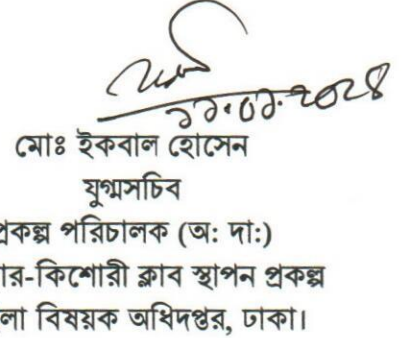 ১১.০১.২০২৪
মোঃ ইকবাল হোসেন
যুগ্মসচিব
প্রকল্প পরিচালক (অ: দা:)
ার-কিশোরী ক্লাব স্থাপন প্রকল্প
লা বিষয়ক অধিদপ্তর, ঢাকা।